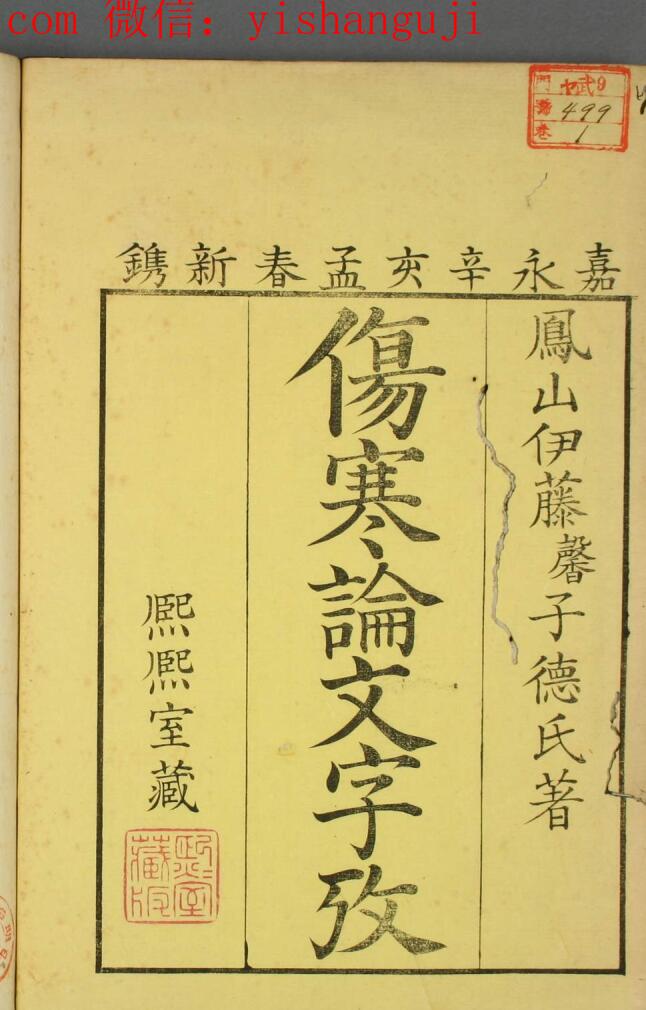 com 微信：yishanguji
門 ヤ武9
號 499
卷 1
嘉永辛亥孟春新鐫
鳳山伊藤馨子德氏著
傷寒論文字攷
熙熙室藏
熙室
藏版